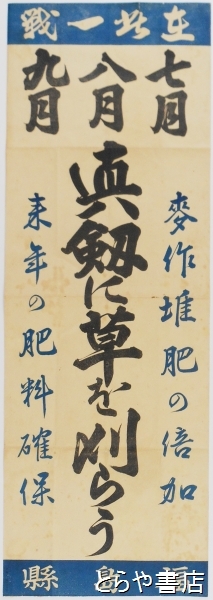 在此一戦
七月
八月
九月
麥作堆肥の倍加
真劔に草を刈らう
来年の肥料確保
福島縣
とらや書店